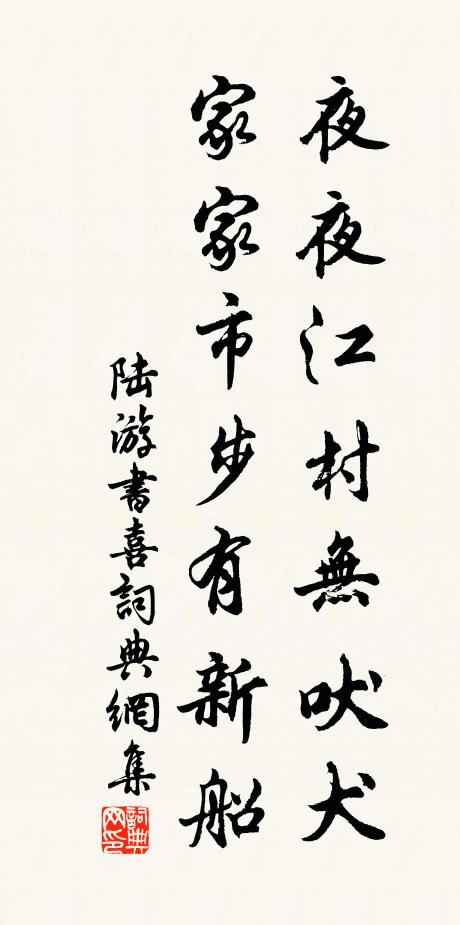 夜夜江村無吠犬
家家市步有新船
陆游書喜詞典網集
詞典网印